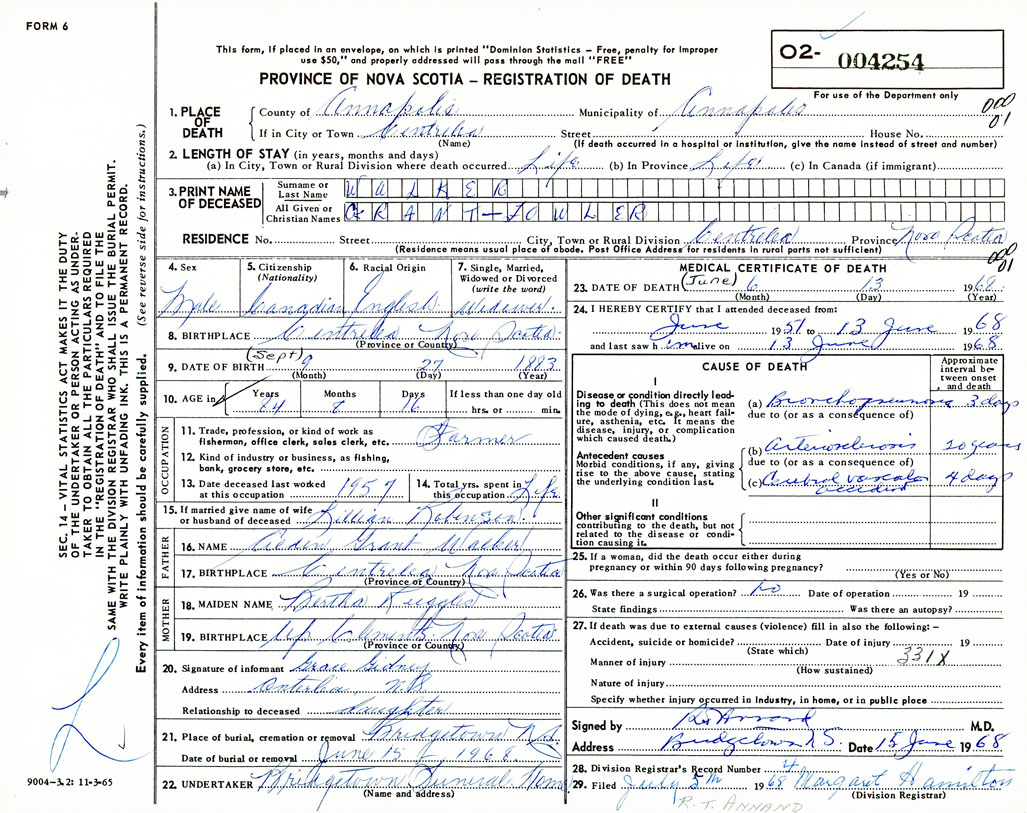 FORM 6
This form, if placed in an envelope, on which is printed "Dominion Statistics – Free, penalty for improper
use $50," and properly addressed will pass through the mail "FREE"
PROVINCE OF NOVA SCOTIA – REGISTRATION OF DEATH
O2- 004254
For use of the Department only
000
01
1. PLACE OF DEATH
County of Annapolis Municipality of Annapolis
If in City or Town Centrelea Street House No.
(Name) (If death occurred in a hospital or institution, give the name instead of street and number)
2. LENGTH OF STAY (in years, months and days)
(a) In City, Town or Rural Division where death occurred Life (b) In Province Life (c) In Canada (if immigrant)
3. PRINT NAME OF DECEASED
Surname or Last Name WALKER
All Given or Christian Names GRANT-FOWLER
RESIDENCE No. Street City, Town or Rural Division Centrelea Province Nova Scotia
(Residence means usual place of abode. Post Office Address for residents in rural parts not sufficient)
000
01
4. Sex Male
5. Citizenship (Nationality) Canadian
6. Racial Origin English
7. Single, Married, Widowed or Divorced (write the word) Widower
8. BIRTHPLACE Centrelea Nova Scotia
(Province or Country)
9. DATE OF BIRTH (Sept) 9 27 1883
(Month) (Day) (Year)
10. AGE in Years 84 Months 8 Days 16 If less than one day old hrs. or min.
OCCUPATION
11. Trade, profession, or kind of work as fisherman, office clerk, sales clerk, etc. Farmer
12. Kind of industry or business, as fishing, bank, grocery store, etc.
13. Date deceased last worked at this occupation 1957
14. Total yrs. spent in this occupation Life
15. If married give name of wife or husband of deceased Lillian Robinson
FATHER
16. NAME Grant Walker
17. BIRTHPLACE Centrelea Nova Scotia
(Province or Country)
MOTHER
18. MAIDEN NAME Bertha Ruggles
19. BIRTHPLACE Up Clements Nova Scotia
(Province or Country)
20. Signature of informant Grace Gidney
Address Centrelea, N.S.
Relationship to deceased daughter
21. Place of burial, cremation or removal Bridgetown N.S.
Date of burial or removal June 15 1968
22. UNDERTAKER Bridgetown Funeral Home
(Name and address)
MEDICAL CERTIFICATE OF DEATH
23. DATE OF DEATH (June) 6 13 1968
(Month) (Day) (Year)
24. I HEREBY CERTIFY that I attended deceased from:
June 1957 to 13 June 1968
and last saw him alive on 13 June 1968
CAUSE OF DEATH
Approximate interval between onset and death
I
Disease or condition directly leading to death (This does not mean the mode of dying, e.g., heart failure, asthenia, etc. It means the disease, injury, or complication which caused death.)
(a) Bronchopneumonia 3 days
due to (or as a consequence of)
Antecedent causes
Morbid conditions, if any, giving rise to the above cause, stating the underlying condition last.
(b) Arteriosclerosis 20 years
due to (or as a consequence of)
(c) Cerebral vascular accident 4 days
II
Other significant conditions
contributing to the death, but not related to the disease or condition causing it.
25. If a woman, did the death occur either during
pregnancy or within 90 days following pregnancy?
(Yes or No)
26. Was there a surgical operation? No Date of operation 19
State findings Was there an autopsy?
27. If death was due to external causes (violence) fill in also the following: –
Accident, suicide or homicide? Date of injury 19
(State which) 331X
Manner of injury
(How sustained)
Nature of injury
Specify whether injury occurred in Industry, in home, or in public place
Signed by R.T. Annand M.D.
Address Bridgetown N.S. Date 15 June 1968
28. Division Registrar's Record Number 4
29. Filed July 5th 1968 Margaret Hamilton
(Division Registrar)
R. T. ANNAND
SEC. 14 – VITAL STATISTICS ACT MAKES IT THE DUTY
OF THE UNDERTAKER OR PERSON ACTING AS UNDER-
TAKER TO OBTAIN ALL THE PARTICULARS REQUIRED
IN THE "REGISTRATION OF DEATH" AND TO FILE THE
SAME WITH THE DIVISION REGISTRAR WHO SHALL ISSUE THE BURIAL PERMIT.
WRITE PLAINLY WITH UNFADING INK. THIS IS A PERMANENT RECORD.
Every item of information should be carefully supplied. (See reverse side for instructions.)
9004–3.2: 11-3-65